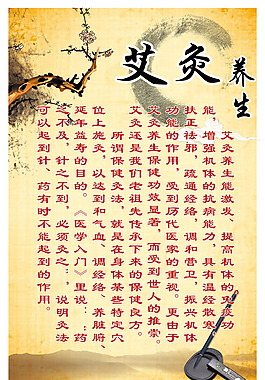 艾灸养生
艾灸养生能激发、提高机体的免疫功
能，增强机体的抗病能力，具有温经散寒、
扶正祛邪，疏通经络，调和营卫，振兴机体
功能的作用，受到历代医家的重视。更由于
艾灸养生保健功效显著，而受到世人的推崇。
艾灸还是我们老祖先传承下来的保健良方。
所谓保健灸法，就是在身体某些特定穴
位上施灸，以达到和气血、调经络、养脏腑、
延年益寿的目的。《医学入门》里说：“药
之不及，针之不到，必须灸之”，说明灸法
可以起到针、药有时不能起到的作用。